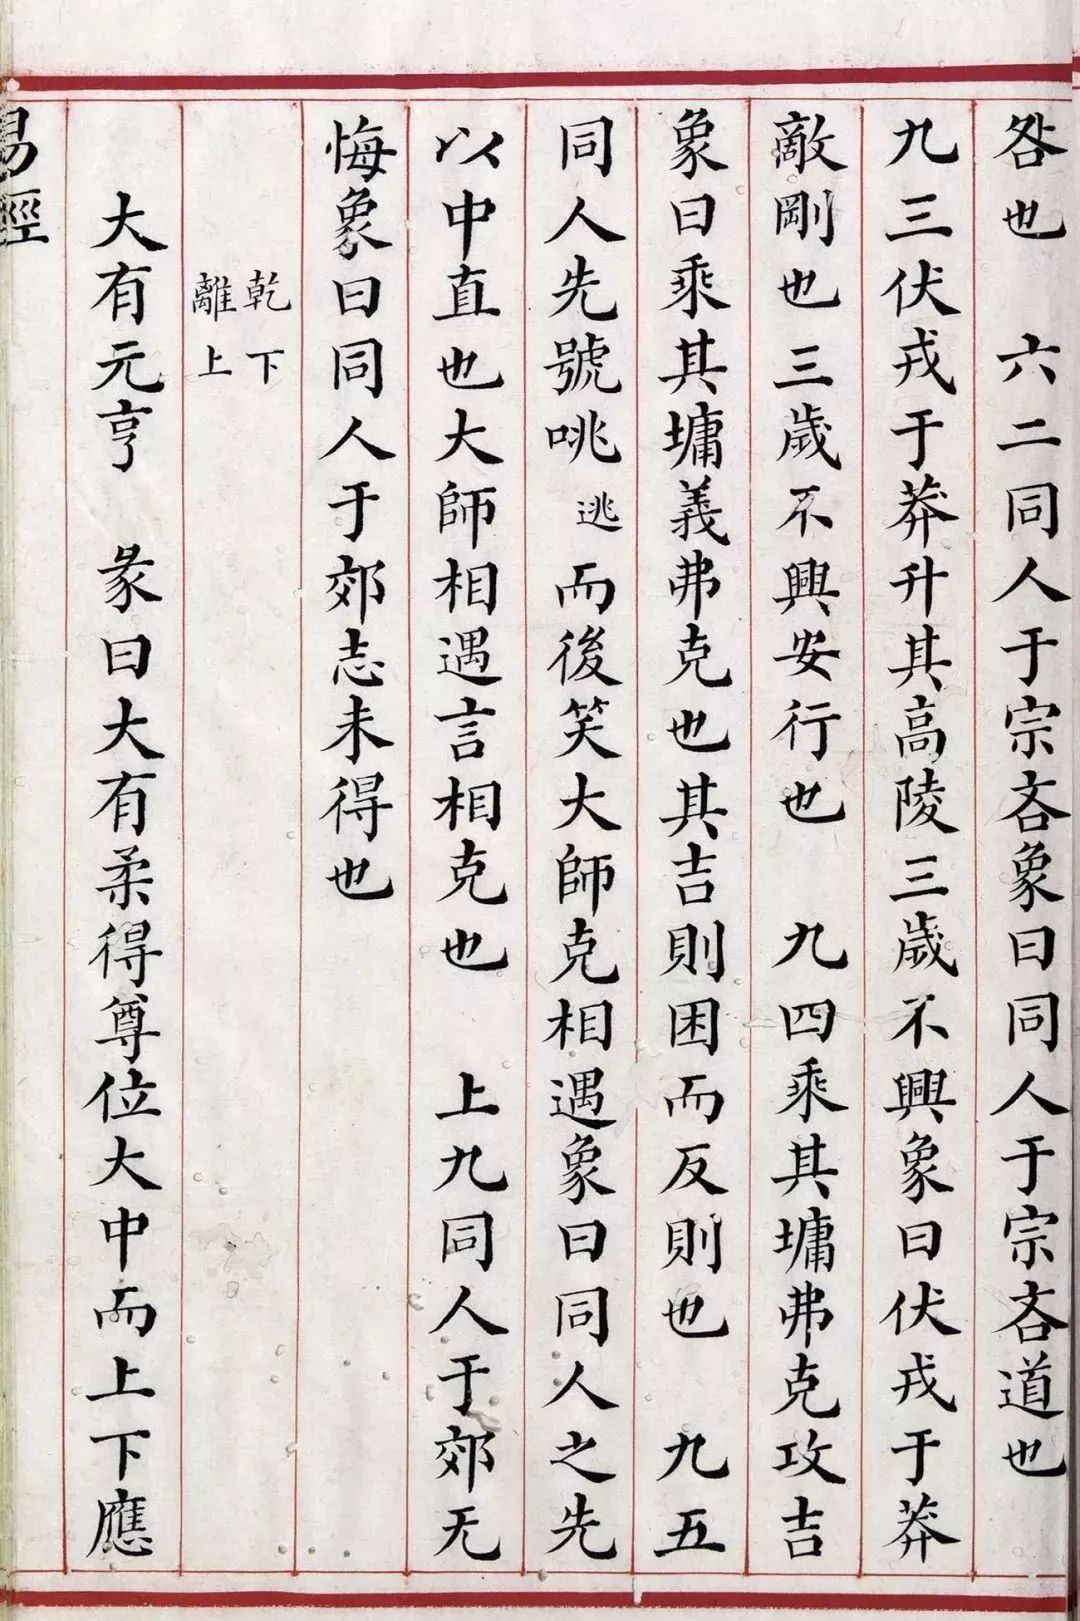 咎也　六二同人于宗吝象曰同人于宗吝道也
九三伏戎于莽升其高陵三歲不興象曰伏戎于莽
敵剛也三歲不興安行也　九四乘其墉弗克攻吉
象曰乘其墉義弗克也其吉則困而反則也　九五
同人先號咷逃而後笑大師克相遇象曰同人之先
以中直也大師相遇言相克也　上九同人于郊无
悔象曰同人于郊志未得也
乾下
離上
大有元亨　彖曰大有柔得尊位大中而上下應
易經